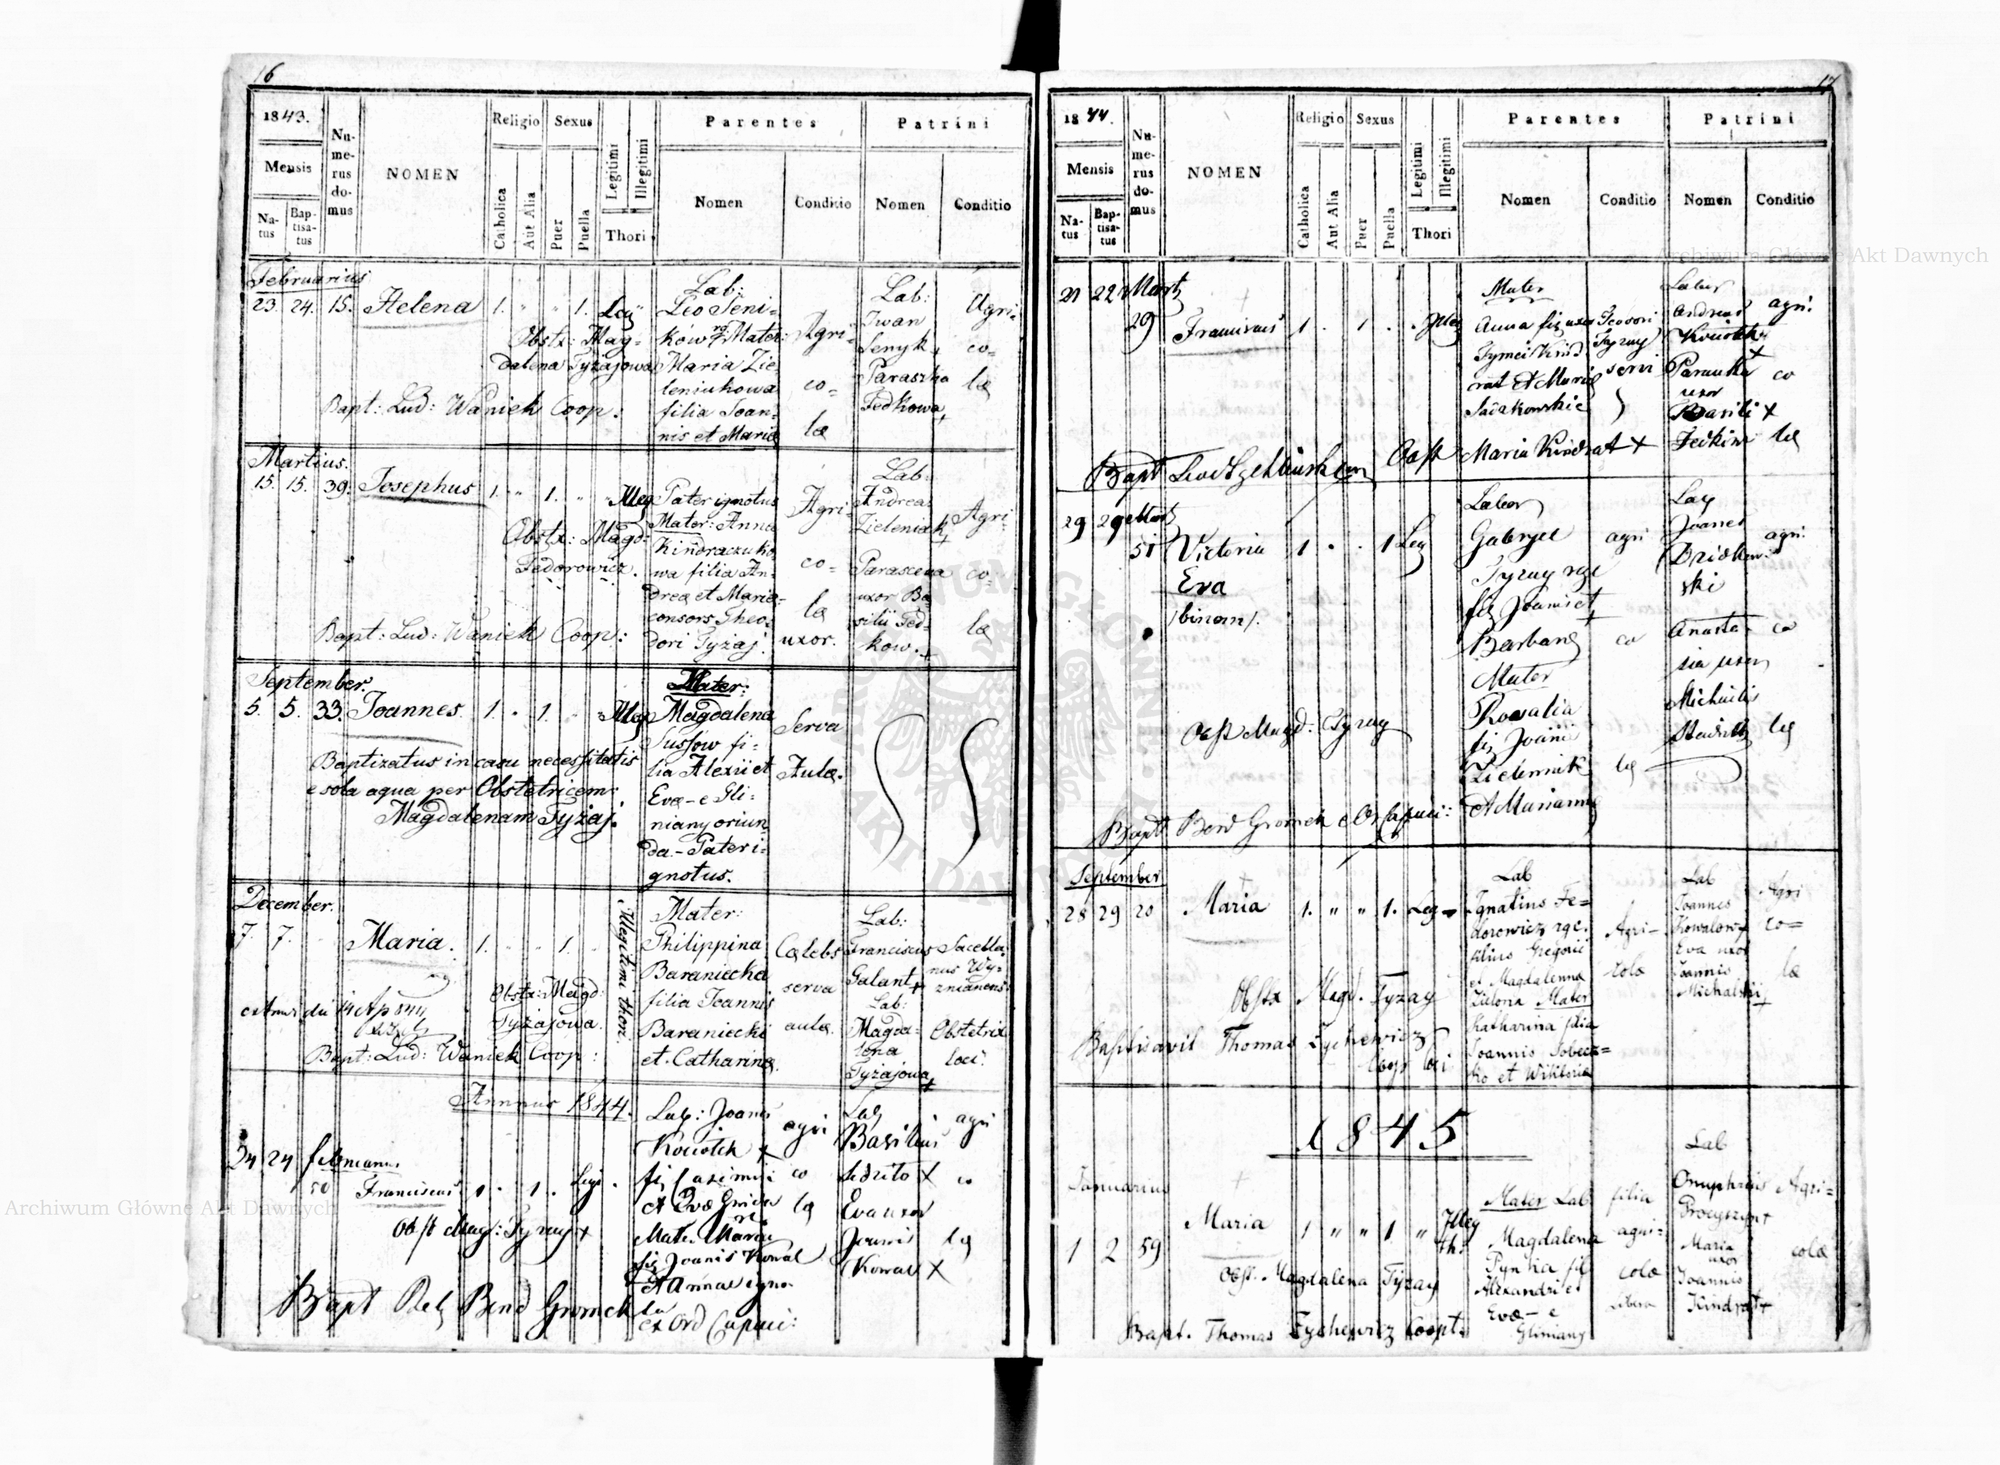 16
1843.
Mensis
Na-
tus
Bap-
tisa-
tus
Nu-
me-
rus
do-
mus
NOMEN
Religio
Catholica
Aut Alia
Sexus
Puer
Puella
Legitimi
Illegitimi
Thori
Parentes
Nomen
Conditio
Patrini
Nomen
Conditio
Februarius
23. 24. 15. Helena 1. " " 1. Leg
Lab:
Leo Seni-
ków Mater:
Maria Zie
leniukowa
filia Joan-
nis et Mariæ
Agri-
co-
læ
Lab:
Iwan
Senyk +
Paraszka
Fedkowa +
Agri-
co-
læ
Obstx: Mag-
dalena Tyzajowa
Bapt: Lud: Waniek Coop.
Martius.
15. 15. 39. Josephus 1. " 1. " Illeg
Pater ignotus
Mater: Anna
Kindraczuko
wa filia An-
dreæ et Mariæ
consors Theo-
dori Tyzaj.
Agri-
co-
læ
uxor.
Lab:
Andreas
Zieleniak +
Parascena
uxor Ba-
silii Fed-
kow. +
Agri-
co-
læ
Obstx: Magd:
Fedorowicz.
Bapt: Lud: Waniek Coop:
September.
5. 5. 33. Joannes. 1. " 1. " Illeg
Mater:
Magdalena
Sussow fi-
lia Alexii et
Evæ - e Gli-
niany oriun
da. - Pater i-
gnotus.
Serva
Aulæ.
Baptizatus in casu necessitatis
e sola aqua per Obstetricem:
Magdalenam Tyzaj.
December.
7. 7. Maria. 1. " " 1. "
Illegitimi thori.
Mater:
Philippina
Baraniecka
filia Joannis
Baraniecki
et Catharinæ.
Cælebs
serva
aulæ.
Lab:
Franciscus
Galant +
Lab:
Magda-
lena
Tyzajowa
+
Sacella-
nus Wy-
znianens:
Obstetrix
loci.
Obstx: Magd:
Tyzajowa.
Bapt: Lud: Waniek Coop:
Annus 1844.
24 24
50 Franciscus 1 . 1 .
Lab: Joanes
Kouotek x
fil Casimiri
et Evæ
Mat: Maria
fil Joanis Kowal
et Annæ
agri
co
læ
Lab
Basilius
x
Eva uxor
Joanis
Kowal X
agri
co
læ
Obst Mag: Tyzay +
Bapt Bend Gromek
ex Ord Capuci:
17
1844.
Mensis
Na-
tus
Bap-
tisa-
tus
Nu-
me-
rus
do-
mus
NOMEN
Religio
Catholica
Aut Alia
Sexus
Puer
Puella
Legitimi
Illegitimi
Thori
Parentes
Nomen
Conditio
Patrini
Nomen
Conditio
21 22 Mart
29 Franciscus 1 . 1 . . Illeg
Mater
Anna fil uxor
Tymei Kind
rat et Mariæ
Teodori
Tyzay
servi
Labor
Andreas
Kouotek
x
Parauka
uxor
Basili x
Fedkiw
agri:
co
læ
Obst Maria Kindrat +
Bapt
29 29 Mart
51 Victoria 1 . . 1 Leg
Eva
/binom/.
Labor
Gabryel
Tyzay rge
fil Joannis et
Barbaræ
Mater
Rosalia
fil Joanis
Zieleniak
et Mariannæ
agri
co
læ
Lab
Joanes
Dziedkow
ski
Anasta
sia uxor
Michaelis
agri:
co
læ
Obst Magd: Tyzay
Bapt Bend Gromek e Or Capuci:
September
28 29 20 Maria 1. " " 1. Leg
Lab
Ignatius Fe-
dorowicz rge.
filius Gregorii
et Magdalenna
Zielona Mater
Katharina filia
Joannis Sobecz-
ko et Wiktoria
Agri-
colæ
Lab
Joannes
Kowalow +
Eva uxor
Joannis
Michalski +
Agri
co-
læ
Obstx Magd. Tyzay
Baptisavit Thomas Zychewicz
Coop loci
1845
Januarius
1 2 59 Maria 1 " " 1 " Illeg
th.
Mater Lab
Magdalena
Pynka fil
Alexandri et
Evæ - e
Gliniany
filia
agri-
colæ
libera
Lab
Onuphrius
+
Maria
uxor
Joannis
Kindrat +
Agri-
colæ
Obst. Magdalena Tyzay
Bapt. Thomas Zychewicz Coopt.
Archiwum Główne Akt Dawnych
Archiwum Główne Akt Dawnych
ARCHIWUM GŁÓWNE AKT DAWNYCH